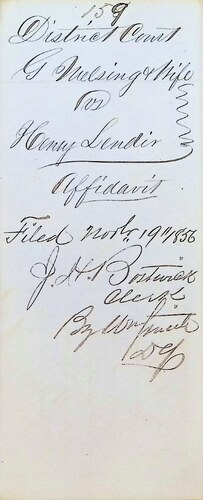 159
District Court
G Nelsing & Wife
vs
Henry Lendir
Affidavit
Filed Novbr 19th 1856
J. H. Bostwick
Clerk
By Wm Smith
Dy